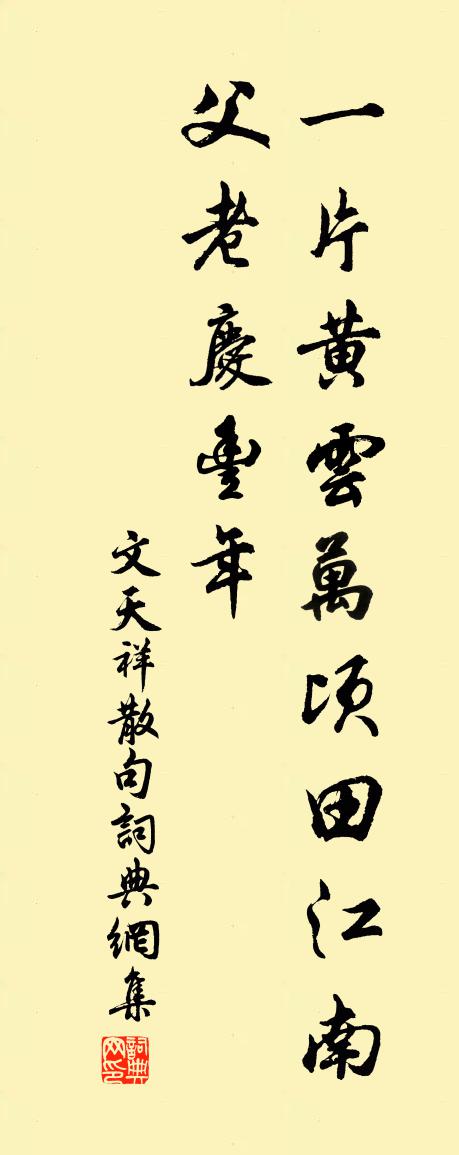 一片黃雲萬頃田江南
父老慶豐年
文天祥散句詞典網集
詞典網印